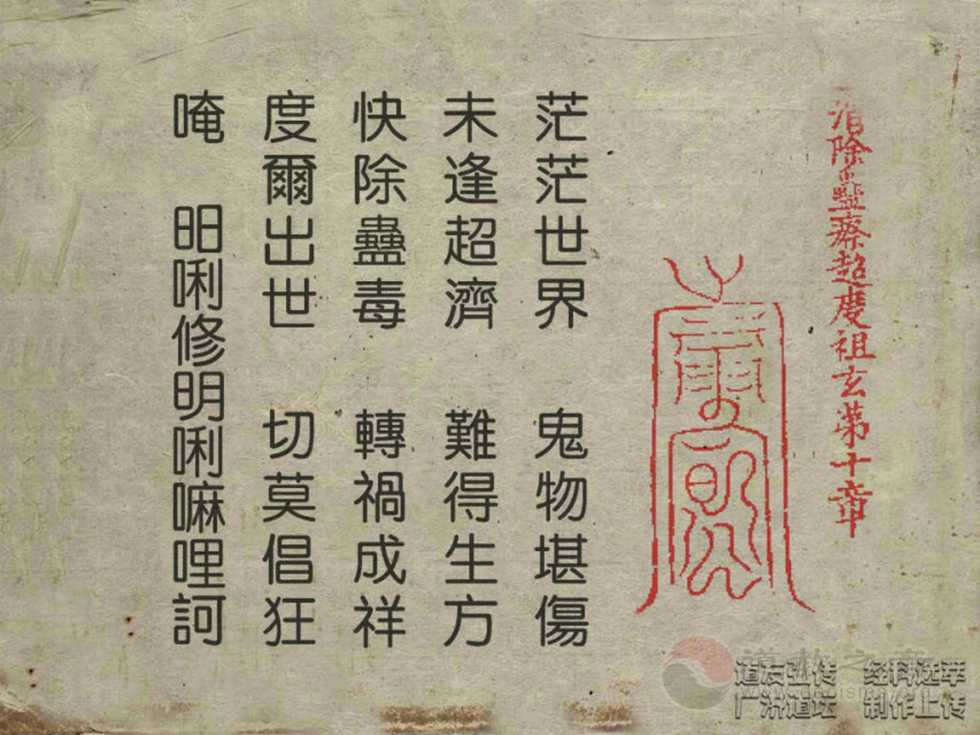 消除蠱瘵超度祖玄苐十章
茫茫世界 鬼物堪傷
未逢超濟 難得生方
快除蠱毒 轉禍成祥
度爾出世 切莫倡狂
唵 唎修明唎嘛哩訶
道友弘传 经科选萃
广济道坛 制作上传
道教之音